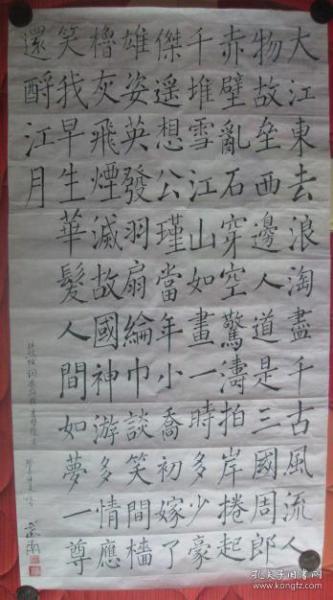 大江東去浪淘盡千古風流人
物故壘西邊人道是三國周郎
赤壁亂石穿空驚濤拍岸捲起
千堆雪江山如畫一時多少豪
傑遙想公瑾當年小喬初嫁了
雄姿英發羽扇綸巾談笑間檣
櫓灰飛煙滅故國神游多情應
笑我早生華髮人間如夢一尊
還酹江月
孔夫子旧书网